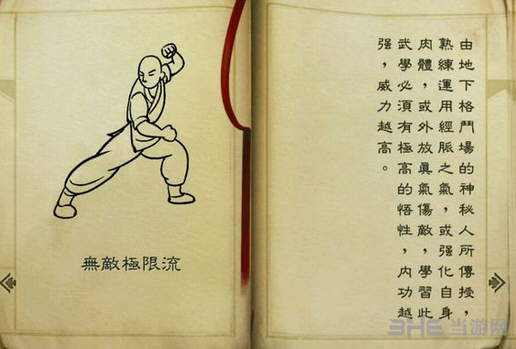 無敵極限流
由地下格鬥場的神秘人所傳授，
熟練運用經脈之氣，或強化自身
肉體，或外放真氣傷敵，學習此
武學必須有極高的悟性，內功越
强，威力越高。
3HE 当游网